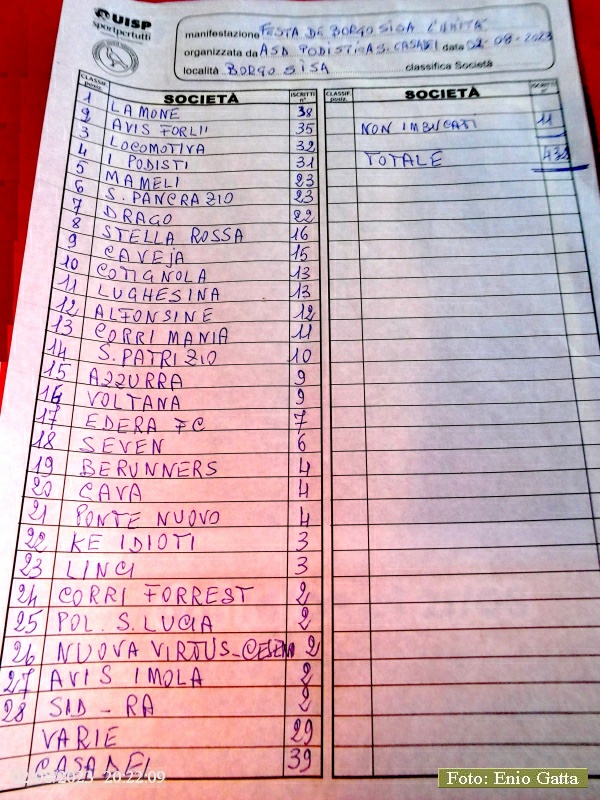 UISP
sportpertutti
manifestazione FESTA DE BORGO SISA L'UNITA'
organizzata da ASD. PODISTICA S. CASADEI data 02-08-2023
località BORGO SISA classifica Società
CLASSIF. posiz. SOCIETÀ ISCRITTI n° CLASSIF. posiz. SOCIETÀ ISCRITTI n°
1 LAMONE 38
2 AVIS FORLI' 35
3 LOCOMOTIVA 32
4 I PODISTI 31
5 MAMELI 23
6 S. PANCRAZIO 23
7 DRAGO 22
8 STELLA ROSSA 16
9 CAVEJA 15
10 COTIGNOLA 13
11 LUGHESINA 13
12 ALFONSINE 12
13 CORRI MANIA 11
14 S. PATRIZIO 10
15 AZZURRA 9
16 VOLTANA 9
17 EDERA FC 7
18 SEVEN 6
19 BERUNNERS 4
20 CAVA 4
21 PONTE NUOVO 4
22 KE IDIOTI 3
23 LINCI 3
24 CORRI FORREST 2
25 POL. S. LUCIA 2
26 NUOVA VIRTUS-CESENA 2
27 AVIS IMOLA 2
28 SID - RA 2
VARIE 29
CASADEI 39
NON IMBUCATI 11
TOTALE 432
2023 20:22:09
Foto: Enio Gatta